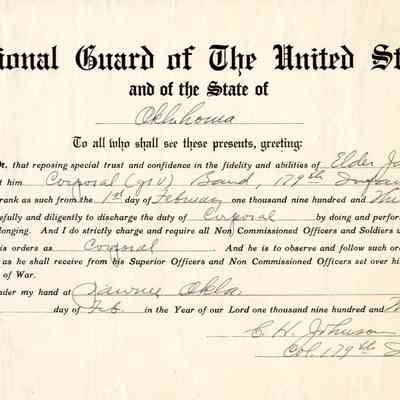 ional Guard of The United St
and of the State of
Oklahoma
To all who shall see these presents, greeting:
that reposing special trust and confidence in the fidelity and abilities of Elder Ja
t him Corporal (gr V) Band, 179th Infan
rank as such from the 1st day of February one thousand nine hundred and
efully and diligently to discharge the duty of Corporal by doing and perform
longing. And I do strictly charge and require all Non Commissioned Officers and Soldiers u
is orders as Corporal And he is to observe and follow such or
as he shall receive from his Superior Officers and Non Commissioned Officers set over hi
of War.
nder my hand at Pawnee Okla
day of Feb. in the Year of our Lord one thousand nine hundred and
C H Johnson
Col. 179th